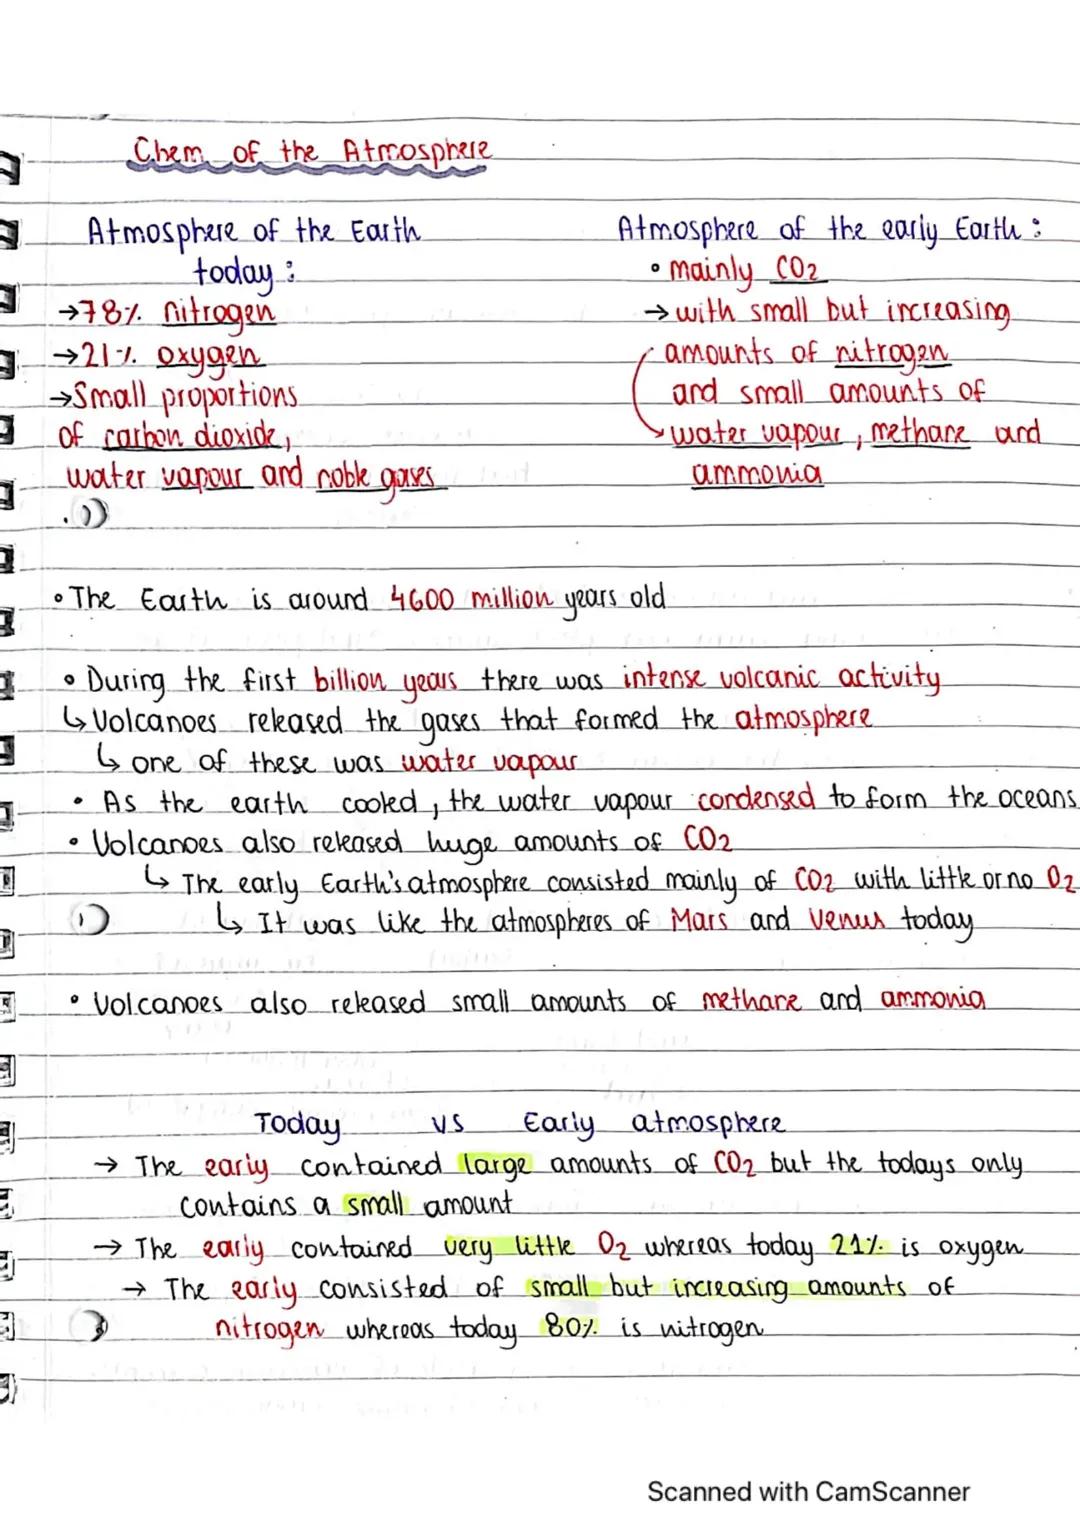 Chem of the Atmosphere
Atmosphere of the Earth
today :
→78% nitrogen
→21% oxygen
→Small proportions
of carbon dioxide,
water vapour and noble gases
Atmosphere of the early Earth :
• mainly CO2
→ with small but increasing
amounts of nitrogen
and small amounts of
water vapour, methane and
ammonia
• The Earth is around 4600 million years old
• During the first billion years there was intense volcanic activity
↳ Volcanoes released the gases that formed the atmosphere
↳ one of these was water vapour
• As the earth cooled, the water vapour condensed to form the oceans
• Volcanoes also released huge amounts of CO2
↳ The early Earth's atmosphere consisted mainly of CO2 with little or no O2
↳ It was like the atmospheres of Mars and Venus today
• Volcanoes also released small amounts of methane and ammonia
Today vs Early atmosphere
→ The early contained large amounts of CO2 but the todays only
contains a small amount
→ The early contained very little O2 whereas today 21% is oxygen
→ The early consisted of small but increasing amounts of
nitrogen whereas today 80% is nitrogen
Scanned with CamScanner